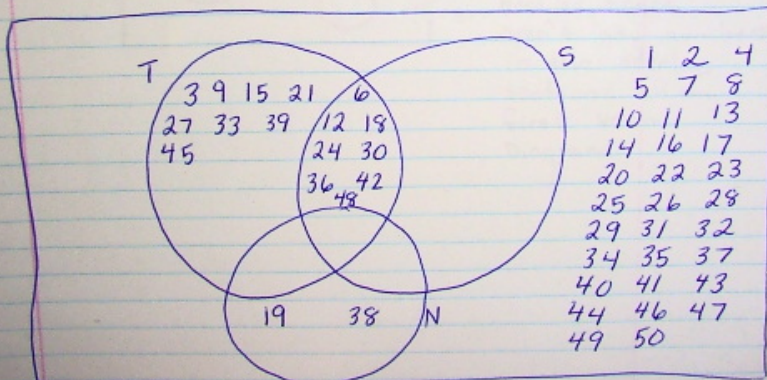 T
3 9 15 21
27 33 39
45
6
12 18
24 30
36 42
48
S
19 38 N
1 2 4
5 7 8
10 11 13
14 16 17
20 22 23
25 26 28
29 31 32
34 35 37
40 41 43
44 46 47
49 50